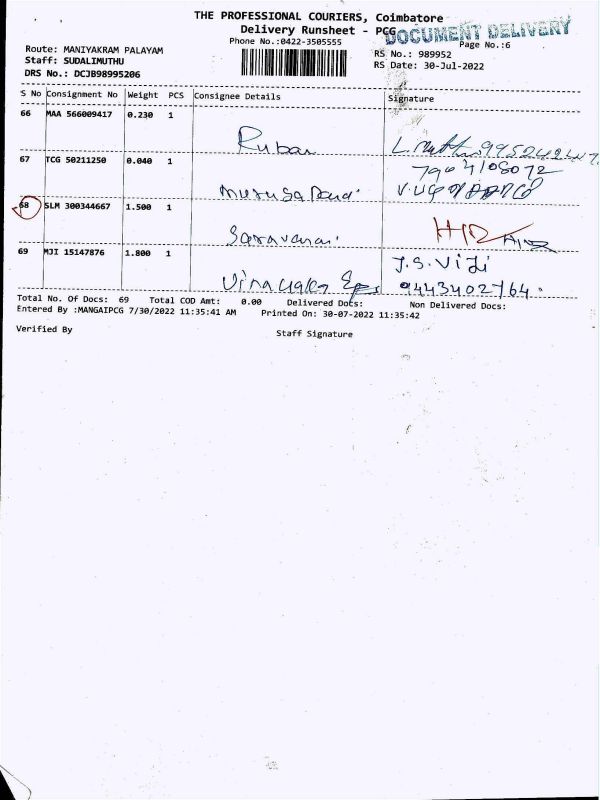 THE PROFESSIONAL COURIERS, Coimbatore
Delivery Runsheet - PCG
DOCUMENT DELIVERY
Phone No.:0422-3505555
Page No.:6
Route: MANIYAKRAM PALAYAM
RS No.: 989952
Staff: SUDALIMUTHU
RS Date: 30-Jul-2022
DRS No.: DCJB98995206
S No Consignment No Weight PCS Consignee Details Signature
66 MAA 566009417 0.230 1
Ruban
67 TCG 50211250 0.040 1
7904108072
68 SLM 300344667 1.500 1
Saravanan
69 MJI 15147876 1.800 1
J.S.Viji
9443402764
Total No. Of Docs: 69 Total COD Amt: 0.00 Delivered Docs: Non Delivered Docs:
Entered By :MANGAIPCG 7/30/2022 11:35:41 AM Printed On: 30-07-2022 11:35:42
Verified By
Staff Signature